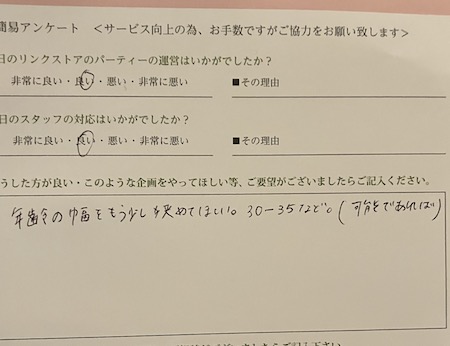 簡易アンケート　<サービス向上の為、お手数ですがご協力をお願い致します>
日のリンクストアのパーティーの運営はいかがでしたか?
非常に良い・良い・悪い・非常に悪い　■その理由
日のスタッフの対応はいかがでしたか?
非常に良い・良い・悪い・非常に悪い　■その理由
うした方が良い・このような企画をやってほしい等、ご要望がございましたらご記入ください。
年齢の幅をもう少し狭めてほしい。30-35など。(可能であれば)